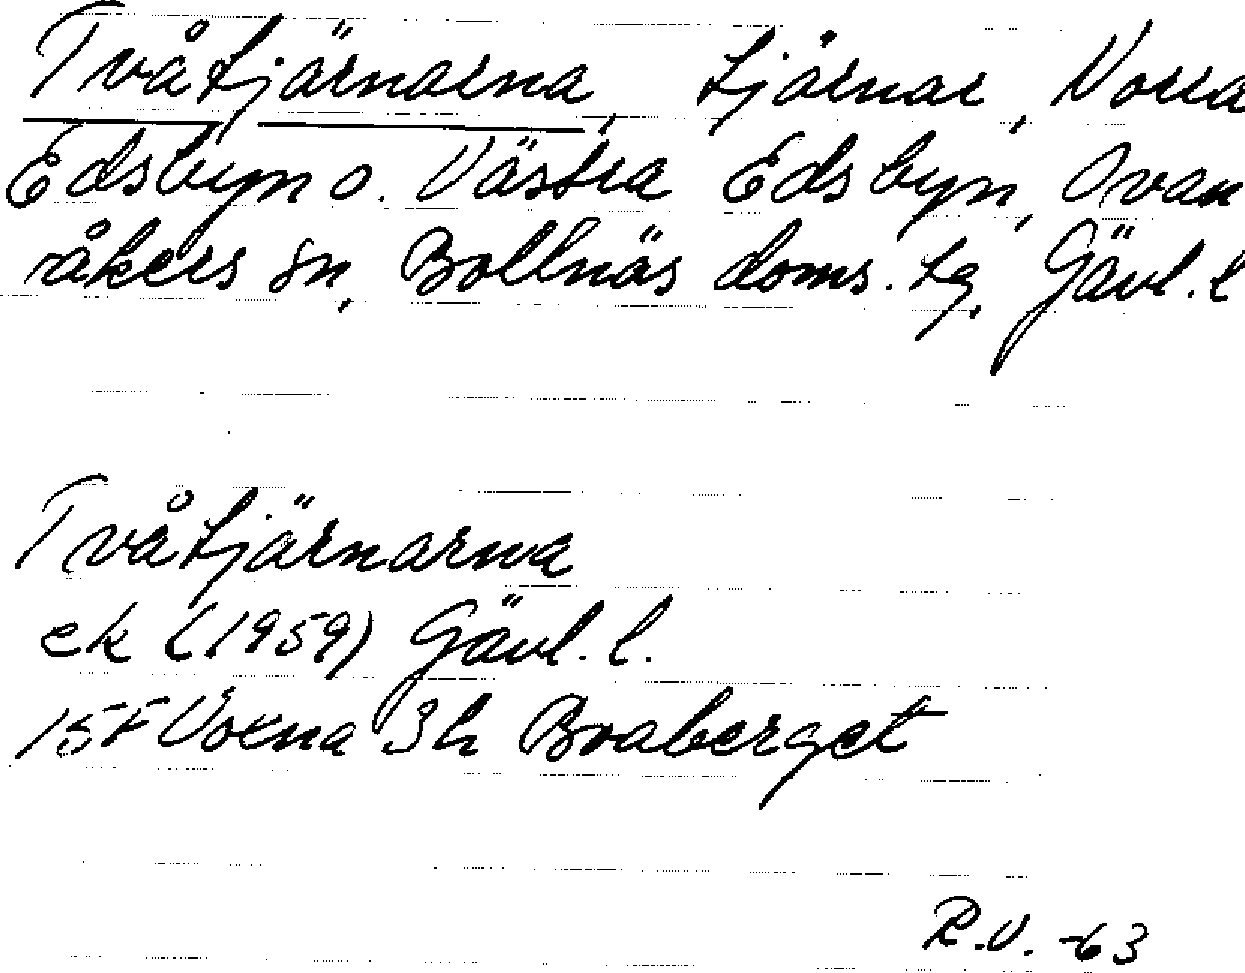 Tvåtjärnarna, tjärnar, Norra
Edsbyn o. Västra Edsbyn, Ovan
råkers sn, Bollnäs doms. tg, Gävl. l
Tvåtjärnarna
ek (1959) Gävl. l.
15F Voxna 3h Boaberget
R.V. -63